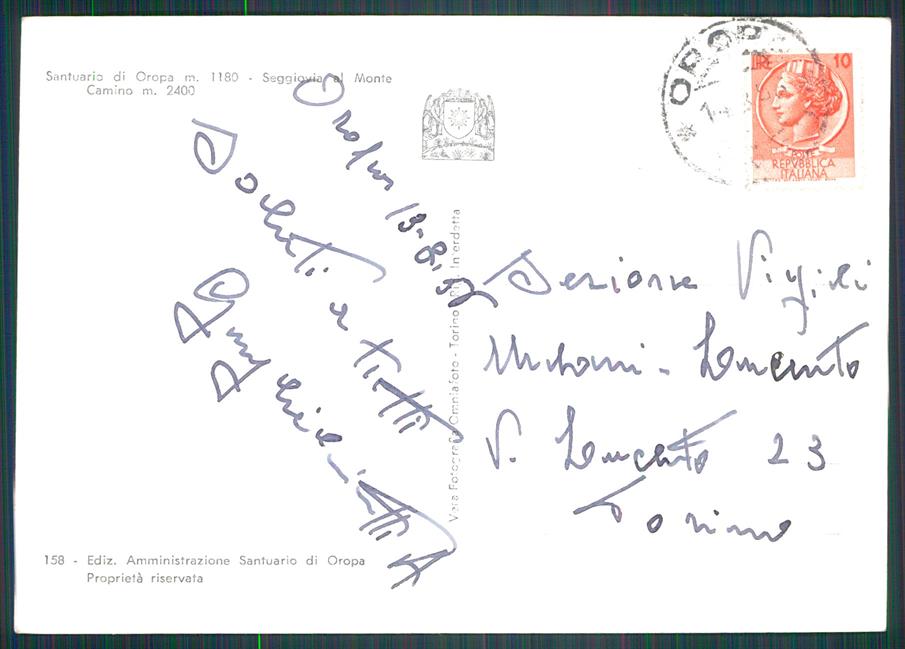 Santuario di Oropa m. 1180 - Seggiovia al Monte
Camino m. 2400
Oropa 13-8-
Saluti a tutti
OROPA
LIRE 10
POSTE
REPVBBLICA
ITALIANA
Vera Fotografia Omniafoto - Torino - Rip. Interdetta
Sezione Vigili
Urbani - Lucento
V. Lucento 23
Torino
158 - Ediz. Amministrazione Santuario di Oropa
Proprietà riservata